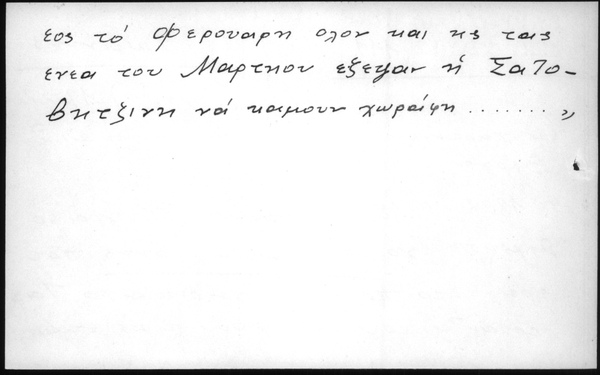 εος τό Φερουαρη ολον και ης τας
ενεα του Μαρτηου εξεψαν ή Σατο-
βητζινη νά καμουν χωράφη ........ „